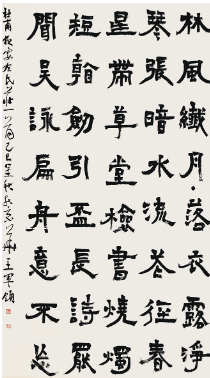 林風纖月落衣露淨
琴張暗水流花徑春
星帶草堂檢書燒燭
短看劍引盃長詩罷
聞吳詠扁舟意不忘
杜甫夜宴左氏莊一首